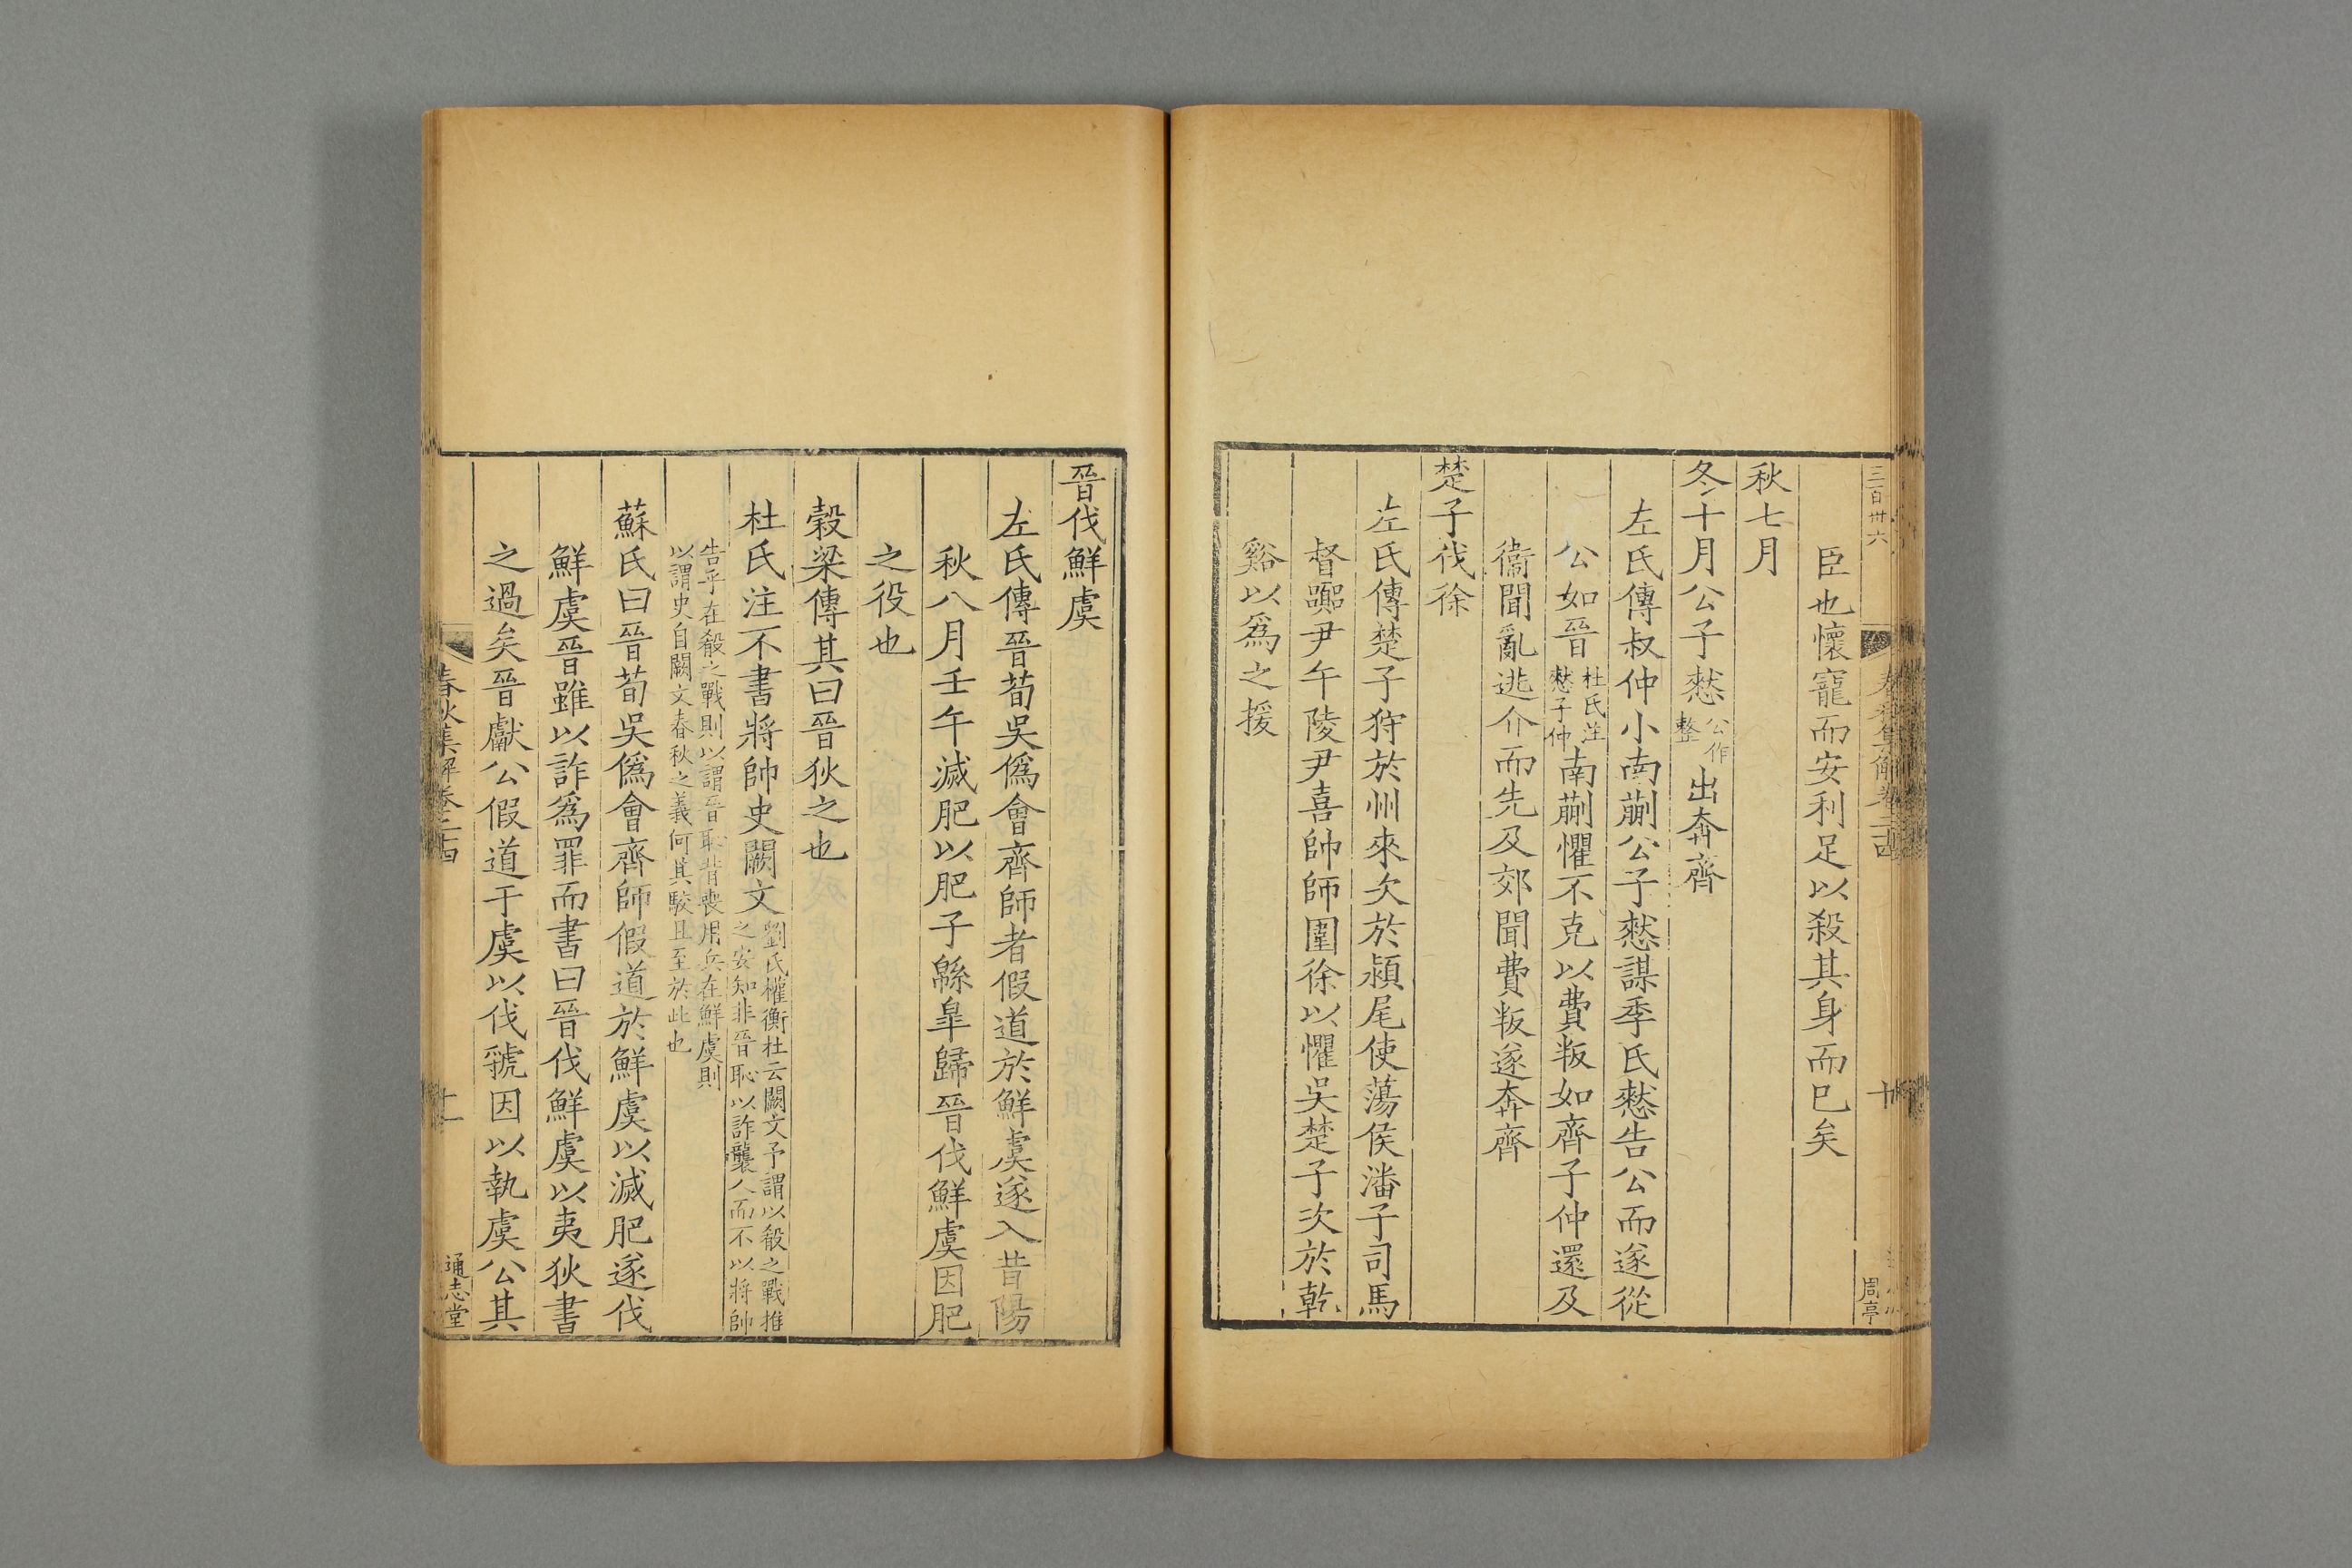 三百卅六
春秋集解卷二十四
十
周亭
臣也懷寵而安利足以殺其身而巳矣
秋七月
冬十月公子憖公作整出奔齊
左氏傳叔仲小南蒯公子憖謀季氏憖告公而遂從
公如晉杜氏注憖子仲南蒯懼不克以費叛如齊子仲還及
衞聞亂逃介而先及郊聞費叛遂奔齊
楚子伐徐
左氏傳楚子狩於州來次於潁尾使蕩侯潘子司馬
督嚻尹午陵尹喜帥師圍徐以懼吳楚子次於乾
谿以爲之援
晉伐鮮虞
左氏傳晉荀吳僞會齊師者假道於鮮虞遂入昔陽
秋八月壬午滅肥以肥子緜臯歸晉伐鮮虞因肥
之役也
穀梁傳其曰晉狄之也
杜氏注不書將帥史闕文劉氏權衡杜云闕文予謂以殽之戰推
之安知非晉恥以詐襲人而不以將帥
告乎在殽之戰則以謂晉恥背喪用兵在鮮虞則
以謂史自闕文春秋之義何其駮且至於此也
蘇氏曰晉荀吳僞會齊師假道於鮮虞以滅肥遂伐
鮮虞晉雖以詐爲罪而書曰晉伐鮮虞以夷狄書
之過矣晉獻公假道于虞以伐虢因以執虞公其
春秋集解卷二十四
十一
通志堂